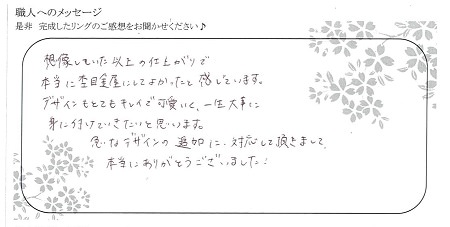 職人へのメッセージ
是非 完成したリングのご感想をお聞かせください♪
想像していた以上の仕上がりで
本当に杢目金屋にしてよかったと感じています。
デザインもとてもキレイで可愛いく、一生大事に
身に付けていきたいと思います。
急なデザインの追加に、対応して頂きまして、
本当にありがとうございました!